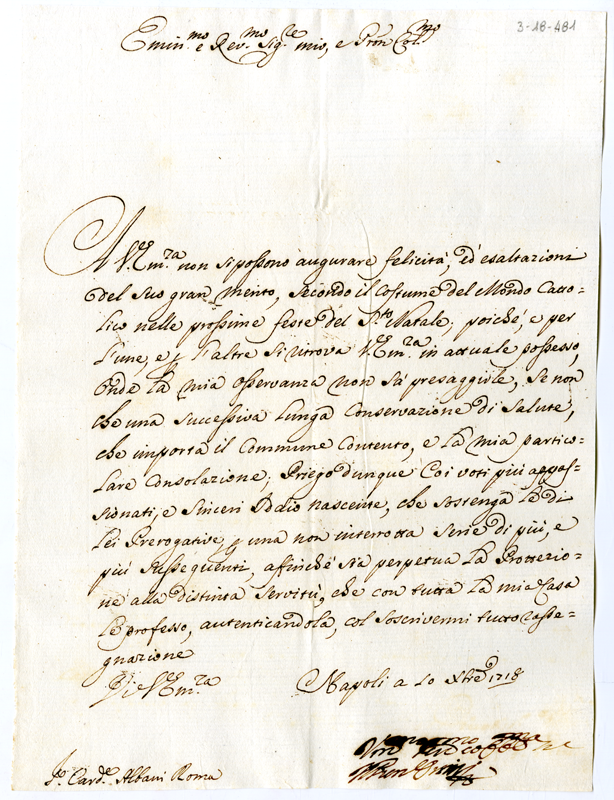 3-18-481
Emin.mo e Rev.mo Sig.re mio, e Pron Col.mo
A V.Em.za non si possono augurare felicità, ed esaltazioni
del suo gran merito, secondo il costume del Mondo Catto=
lico nelle prossime feste del S.to Natale, poiché, e per
l'une, e l'altre si ritrova V.Em.za in attuale possesso,
onde la mia osservanza non sà presaggirle, se non
che una successiva lunga conservazione di salute,
che importa il commune contento, e la mia partico=
lare consolazione; Priego dunque coi voti più appas=
sionati, e sinceri Iddio nascente, che sostenga le di
lei Prerogative, una non interrotta serie di più, e
più susseguenti, affinché sia perpetua la Protterzio=
ne alla distinta servitù, che con tutta la mia Casa
le professo, autenticandola, col soscrivermi tutto rasse=
gnazione
Di V.Em.za
Napoli a 10 Xbre 1718
Card.e Albani Roma